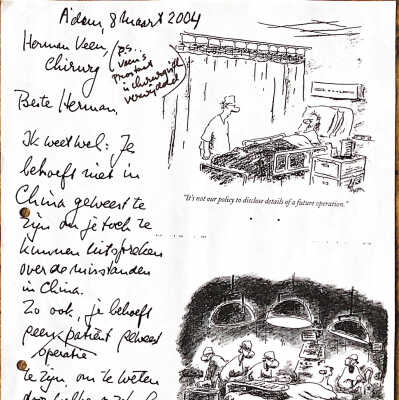 A'dam, 8 maart 2004
Herman Veen,
Chirurg
P.S. Veen's
prostaat
is chirurgisch
verwijderd
Beste Herman,
Ik weet wel: Je
behoeft niet in
China geweest te
zijn om je toch te
kunnen uitspreken
over de misstanden
in China.
Zo ook, je behoeft
geen patiënt geweest
operatie
te zijn, om te weten
door welke
"It's not our policy to disclose details of a future operation."